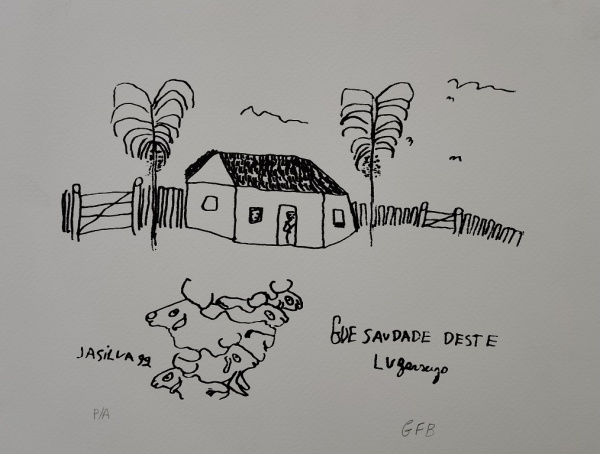 QUE SAUDADE DESTE
LUgarzejo
JASILVA 92
P/A
GFB